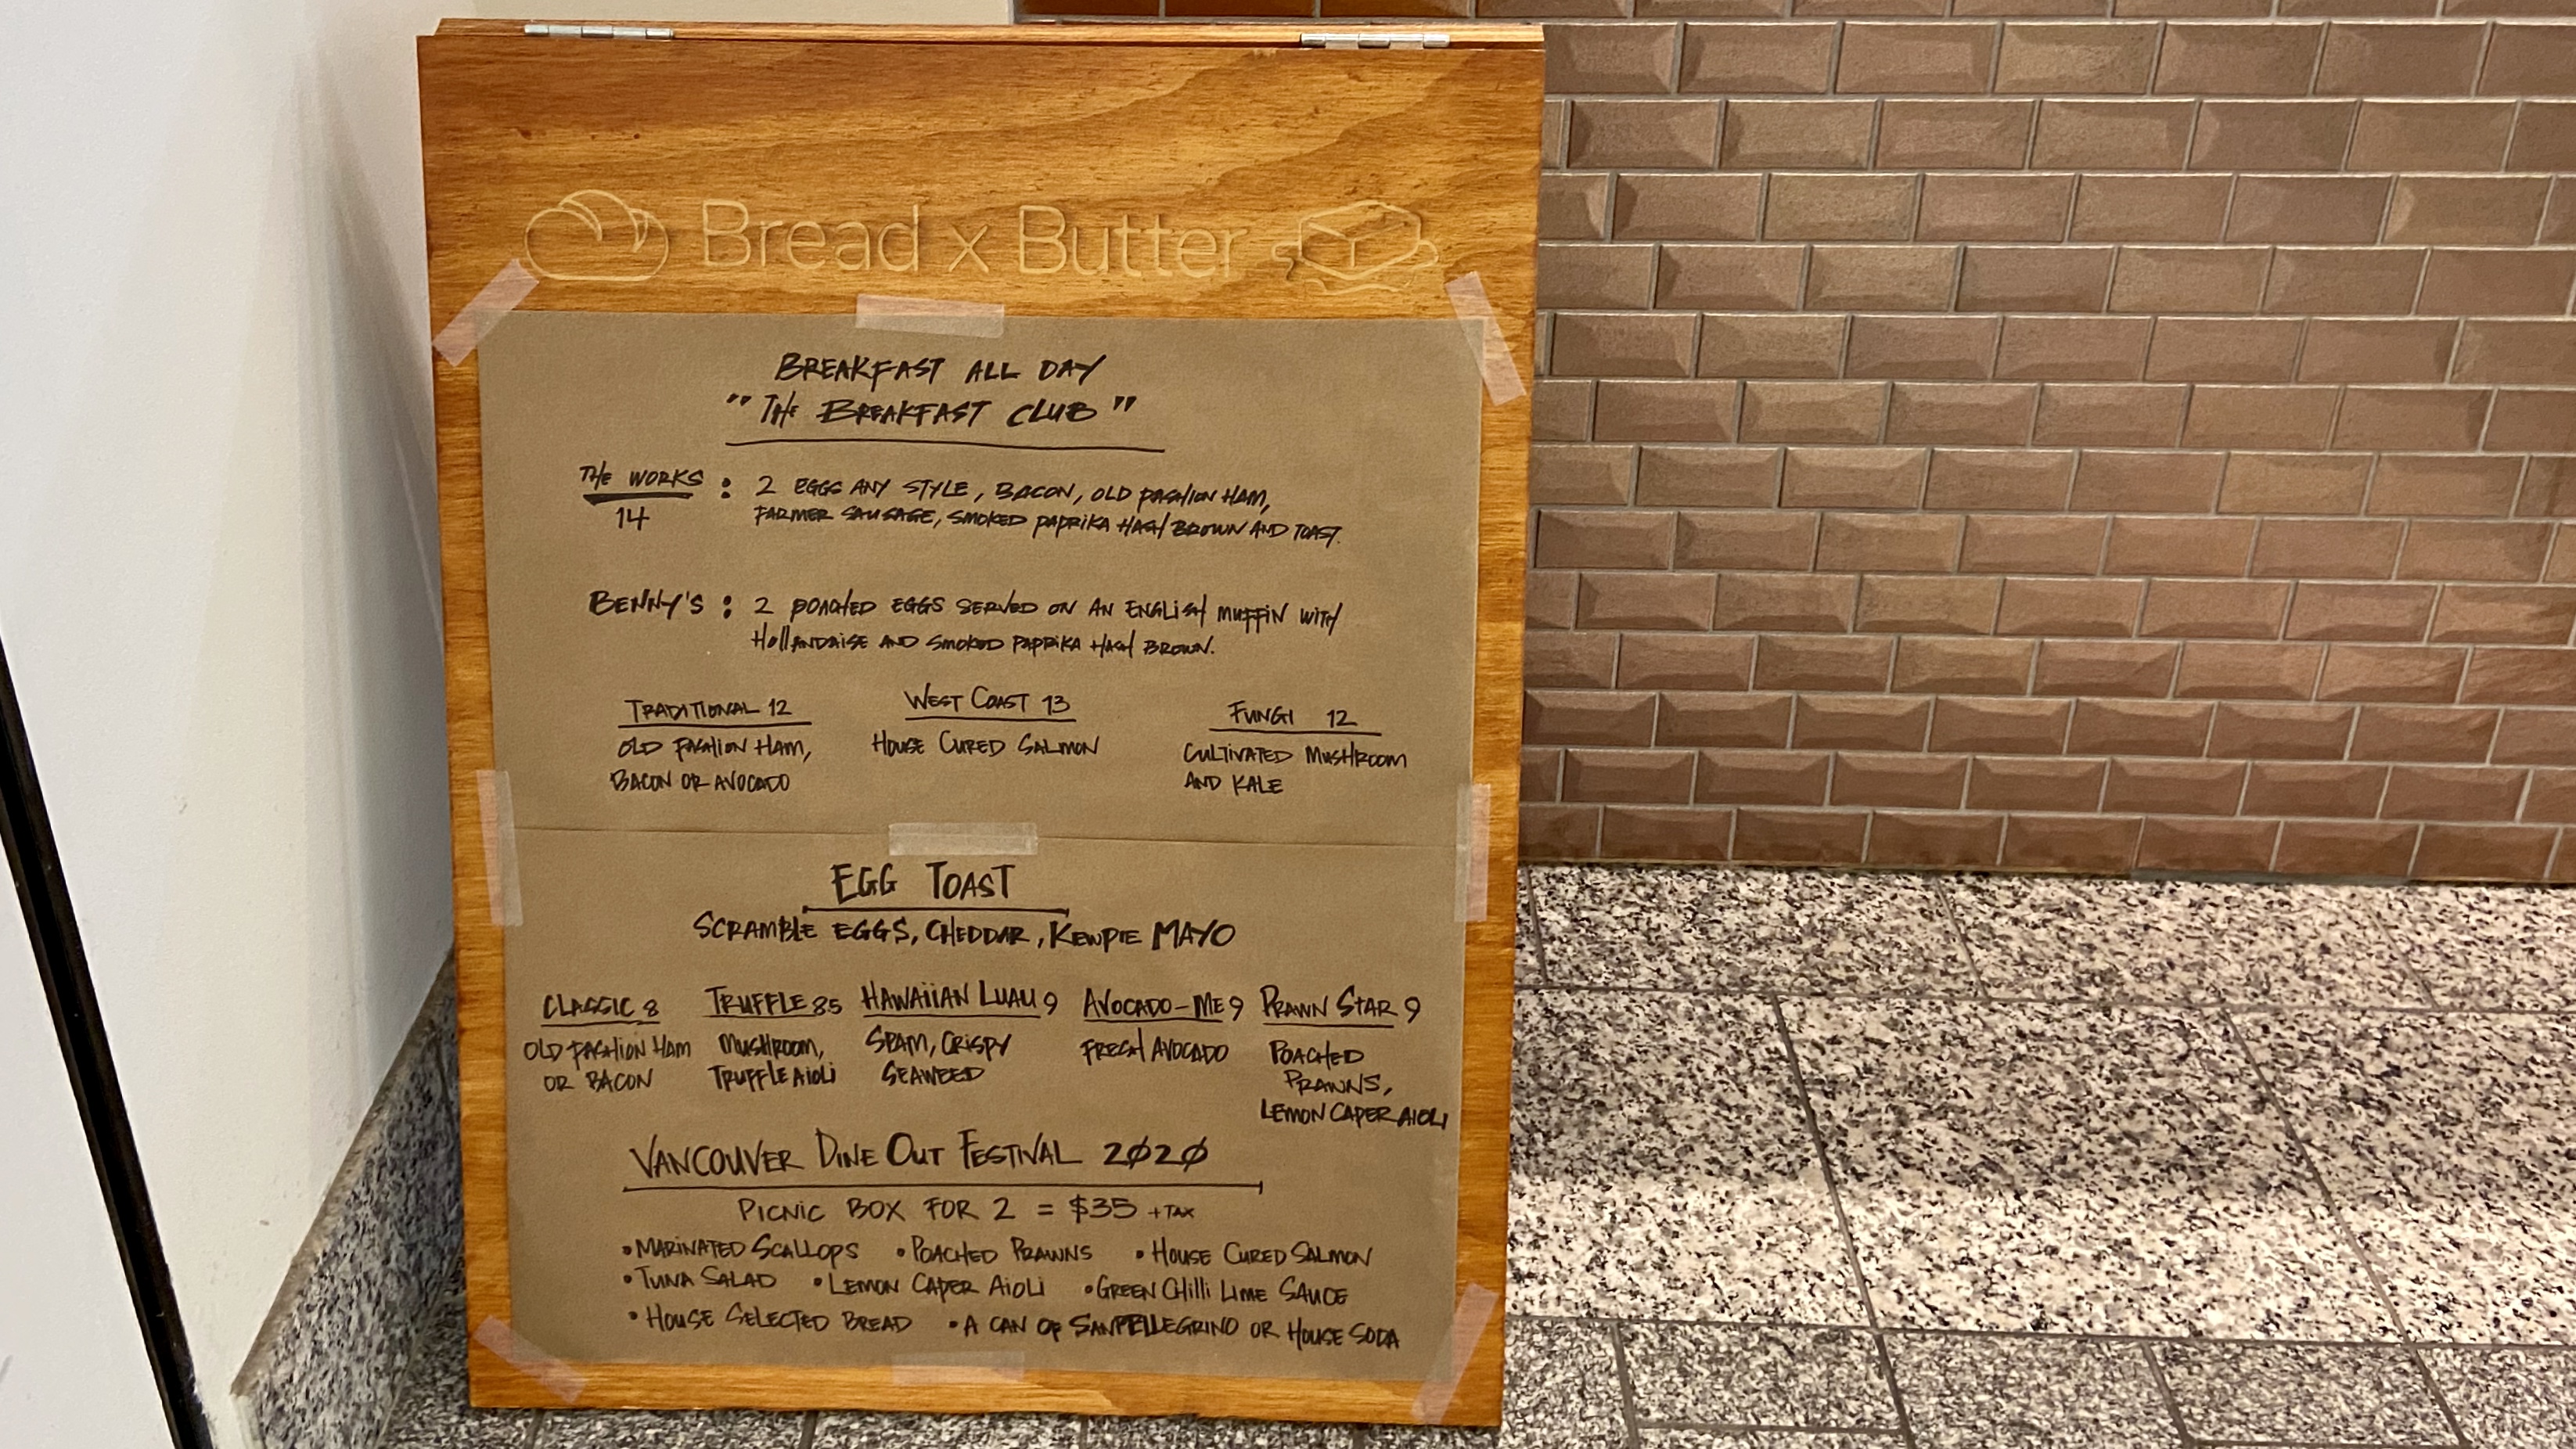 Bread x Butter
BREAKFAST ALL DAY
"THE BREAKFAST CLUB"
THE WORKS : 2 EGGS ANY STYLE, BACON, OLD FASHION HAM,
14 FARMER SAUSAGE, SMOKED PAPRIKA HASH BROWN AND TOAST.
BENNY'S : 2 POACHED EGGS SERVED ON AN ENGLISH MUFFIN WITH
HOLLANDAISE AND SMOKED PAPRIKA HASH BROWN.
TRADITIONAL 12
OLD FASHION HAM,
BACON OR AVOCADO
WEST COAST 13
HOUSE CURED SALMON
FUNGI 12
CULTIVATED MUSHROOM
AND KALE
EGG TOAST
SCRAMBLE EGGS, CHEDDAR, KEWPIE MAYO
CLASSIC 8
OLD FASHION HAM
OR BACON
TRUFFLE 8.5
MUSHROOM,
TRUFFLE AIOLI
HAWAIIAN LUAU 9
SPAM, CRISPY
SEAWEED
AVOCADO-ME 9
FRESH AVOCADO
PRAWN STAR 9
POACHED
PRAWNS,
LEMON CAPER AIOLI
VANCOUVER DINE OUT FESTIVAL 2020
PICNIC BOX FOR 2 = $35 +TAX
• MARINATED SCALLOPS • POACHED PRAWNS • HOUSE CURED SALMON
• TUNA SALAD • LEMON CAPER AIOLI • GREEN CHILLI LIME SAUCE
• HOUSE SELECTED BREAD • A CAN OF SANPELLEGRINO OR HOUSE SODA